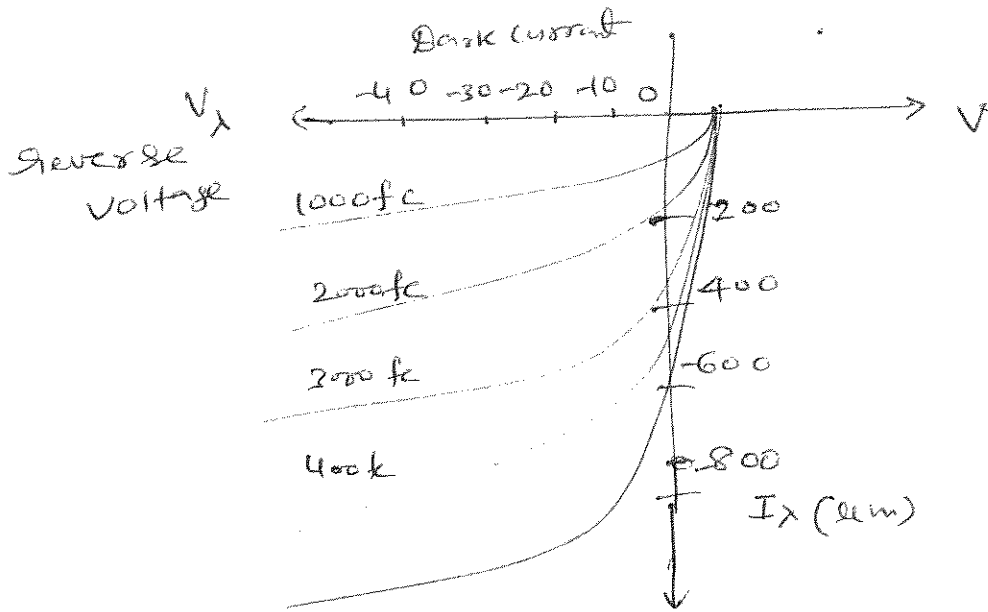 Dark Current
-40 -30 -20 -10 0
Vλ
V
Reverse
Voltage
1000fc
-200
2000fc
-400
3000 fc
-600
-800
Iλ